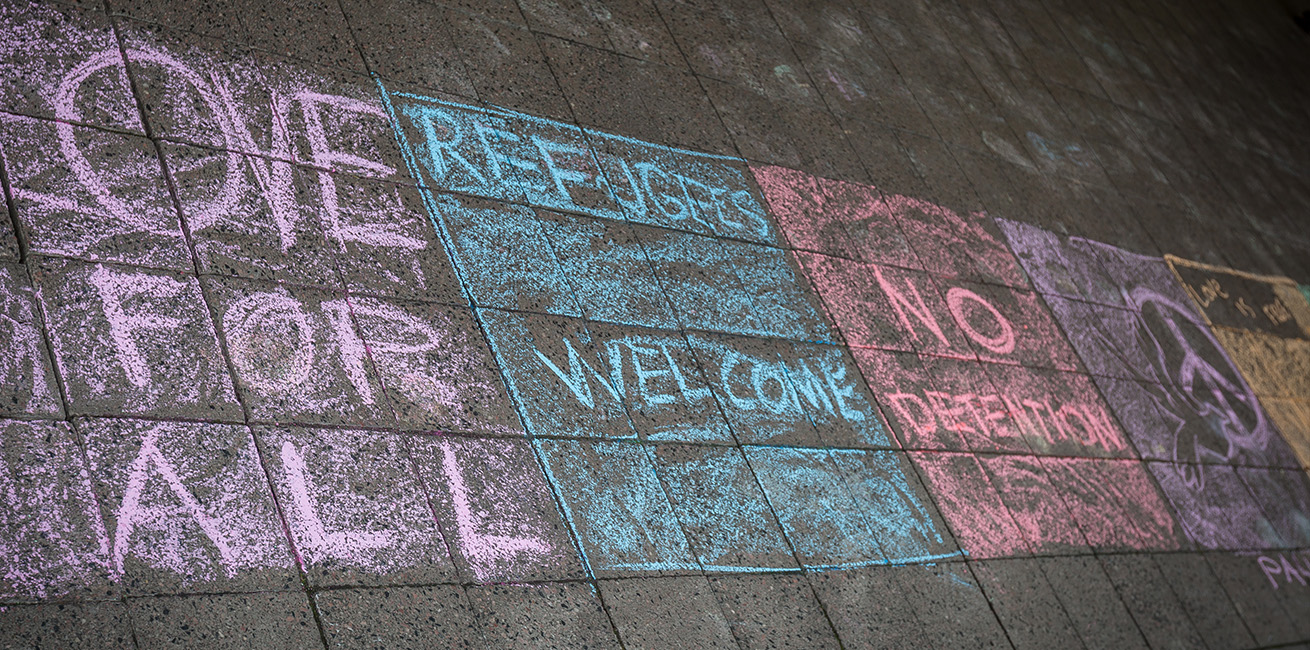 OVE
FOR
ALL
REFUGEES
WELCOME
NO
DETENTION
Love is not